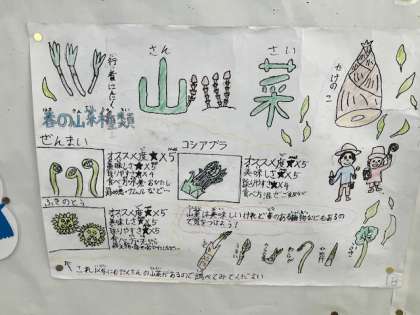 行者にんにく
さん さい
山菜
たけのこ
春の山菜種類
ぜんまい
オススメ度★×5
美味しさ★×5
採りやすさ★×4
コシアブラ
オススメ度★×5
美味しさ★×5
採りやすさ★×4
ふきのとう
オススメ度★×5
美味しさ★×5
採りやすさ★×5
山菜は美味しいけれど毒のある植物などもあるの
で気をつけよう!
これ以外にもたくさんの山菜があるので調べてみてください